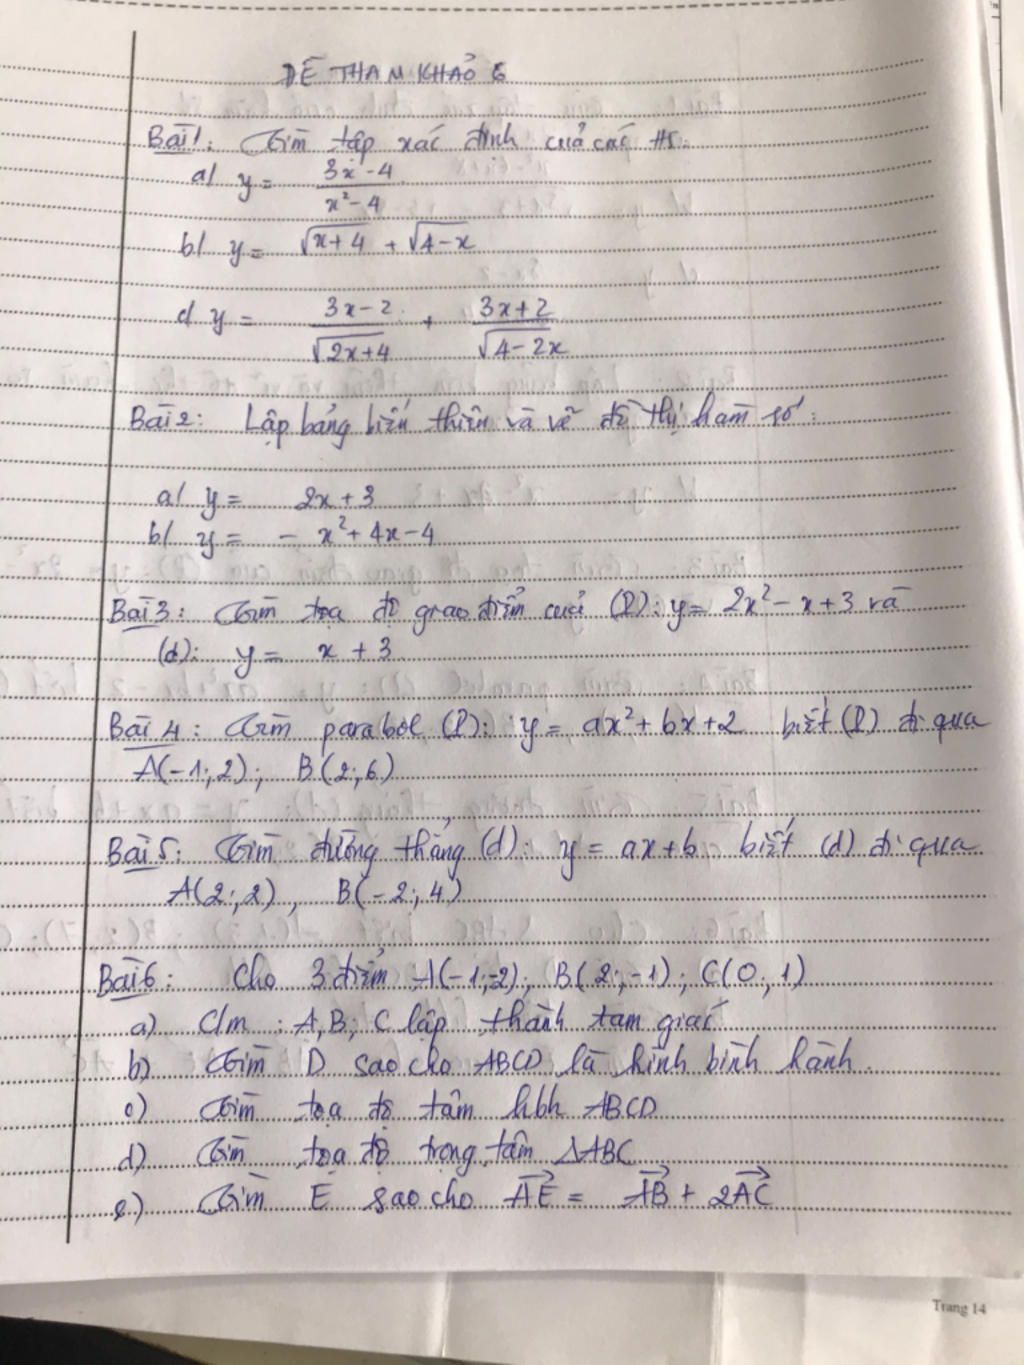 ĐỀ THAM KHẢO 6
Bài 1: Tìm tập xác định của các HS:
a/ y = \frac{3x-4}{x²-4}
b/ y = √(x+4) + √(4-x)
c/ y = \frac{3x-2}{√(2x+4)} + \frac{3x+2}{√(4-2x)}
Bài 2: Lập bảng biến thiên và vẽ đồ thị hàm số:
a/ y = 2x+3
b/ y = - x²+ 4x-4
Bài 3: Tìm tọa độ giao điểm của (P): y= 2x²- x+3 và
(d): y = x + 3
Bài 4: Tìm parabol (P): y= ax²+ bx+2 biết (P) đi qua
A(-1;2); B(2;6)
Bài 5: Tìm đường thẳng (d): y = ax+b biết (d) đi qua
A(2;2), B(-2;4)
Bài 6: Cho 3 điểm A(-1;-2); B(2;-1); C(0;1)
a) C/m: A,B; C lập thành tam giác
b) Tìm D sao cho ABCD là hình bình hành.
c) Tìm tọa độ tâm hbh ABCD
d) Tìm tọa độ trọng tâm ΔABC
e.) Tìm E sao cho \overrightarrow{AE} = \overrightarrow{AB} + 2\overrightarrow{AC}
Trang 14